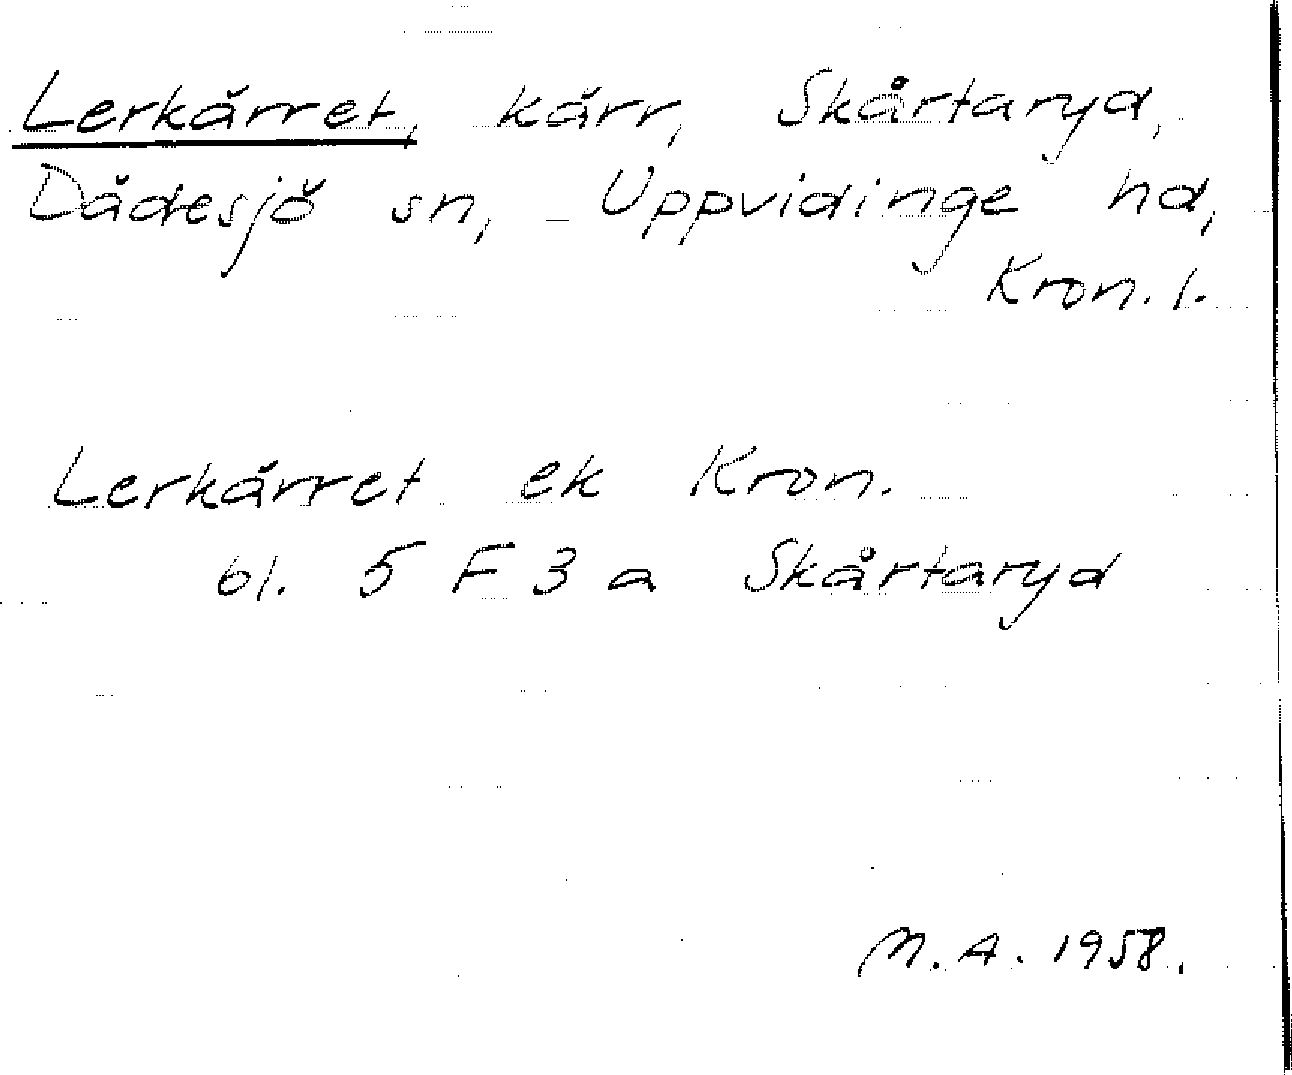 Lerkärret, kärr, Skårtaryd,
Dädesjö sn, Uppvidinge hd,
Kron. l.
Lerkärret ek Kron.
bl. 5 F 3 a Skårtaryd
M. A. 1958.